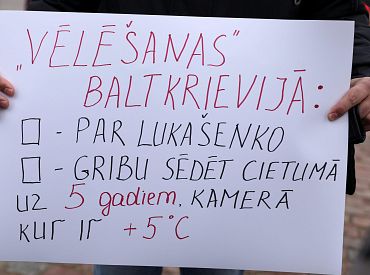 „VĒLĒŠANAS"
BALTKRIEVIJĀ:
☐ - PAR LUKAŠENKO
☐ - GRIBU SĒDĒT CIETUMĀ
UZ 5 gadiem, KAMERĀ
KUR IR +5°C